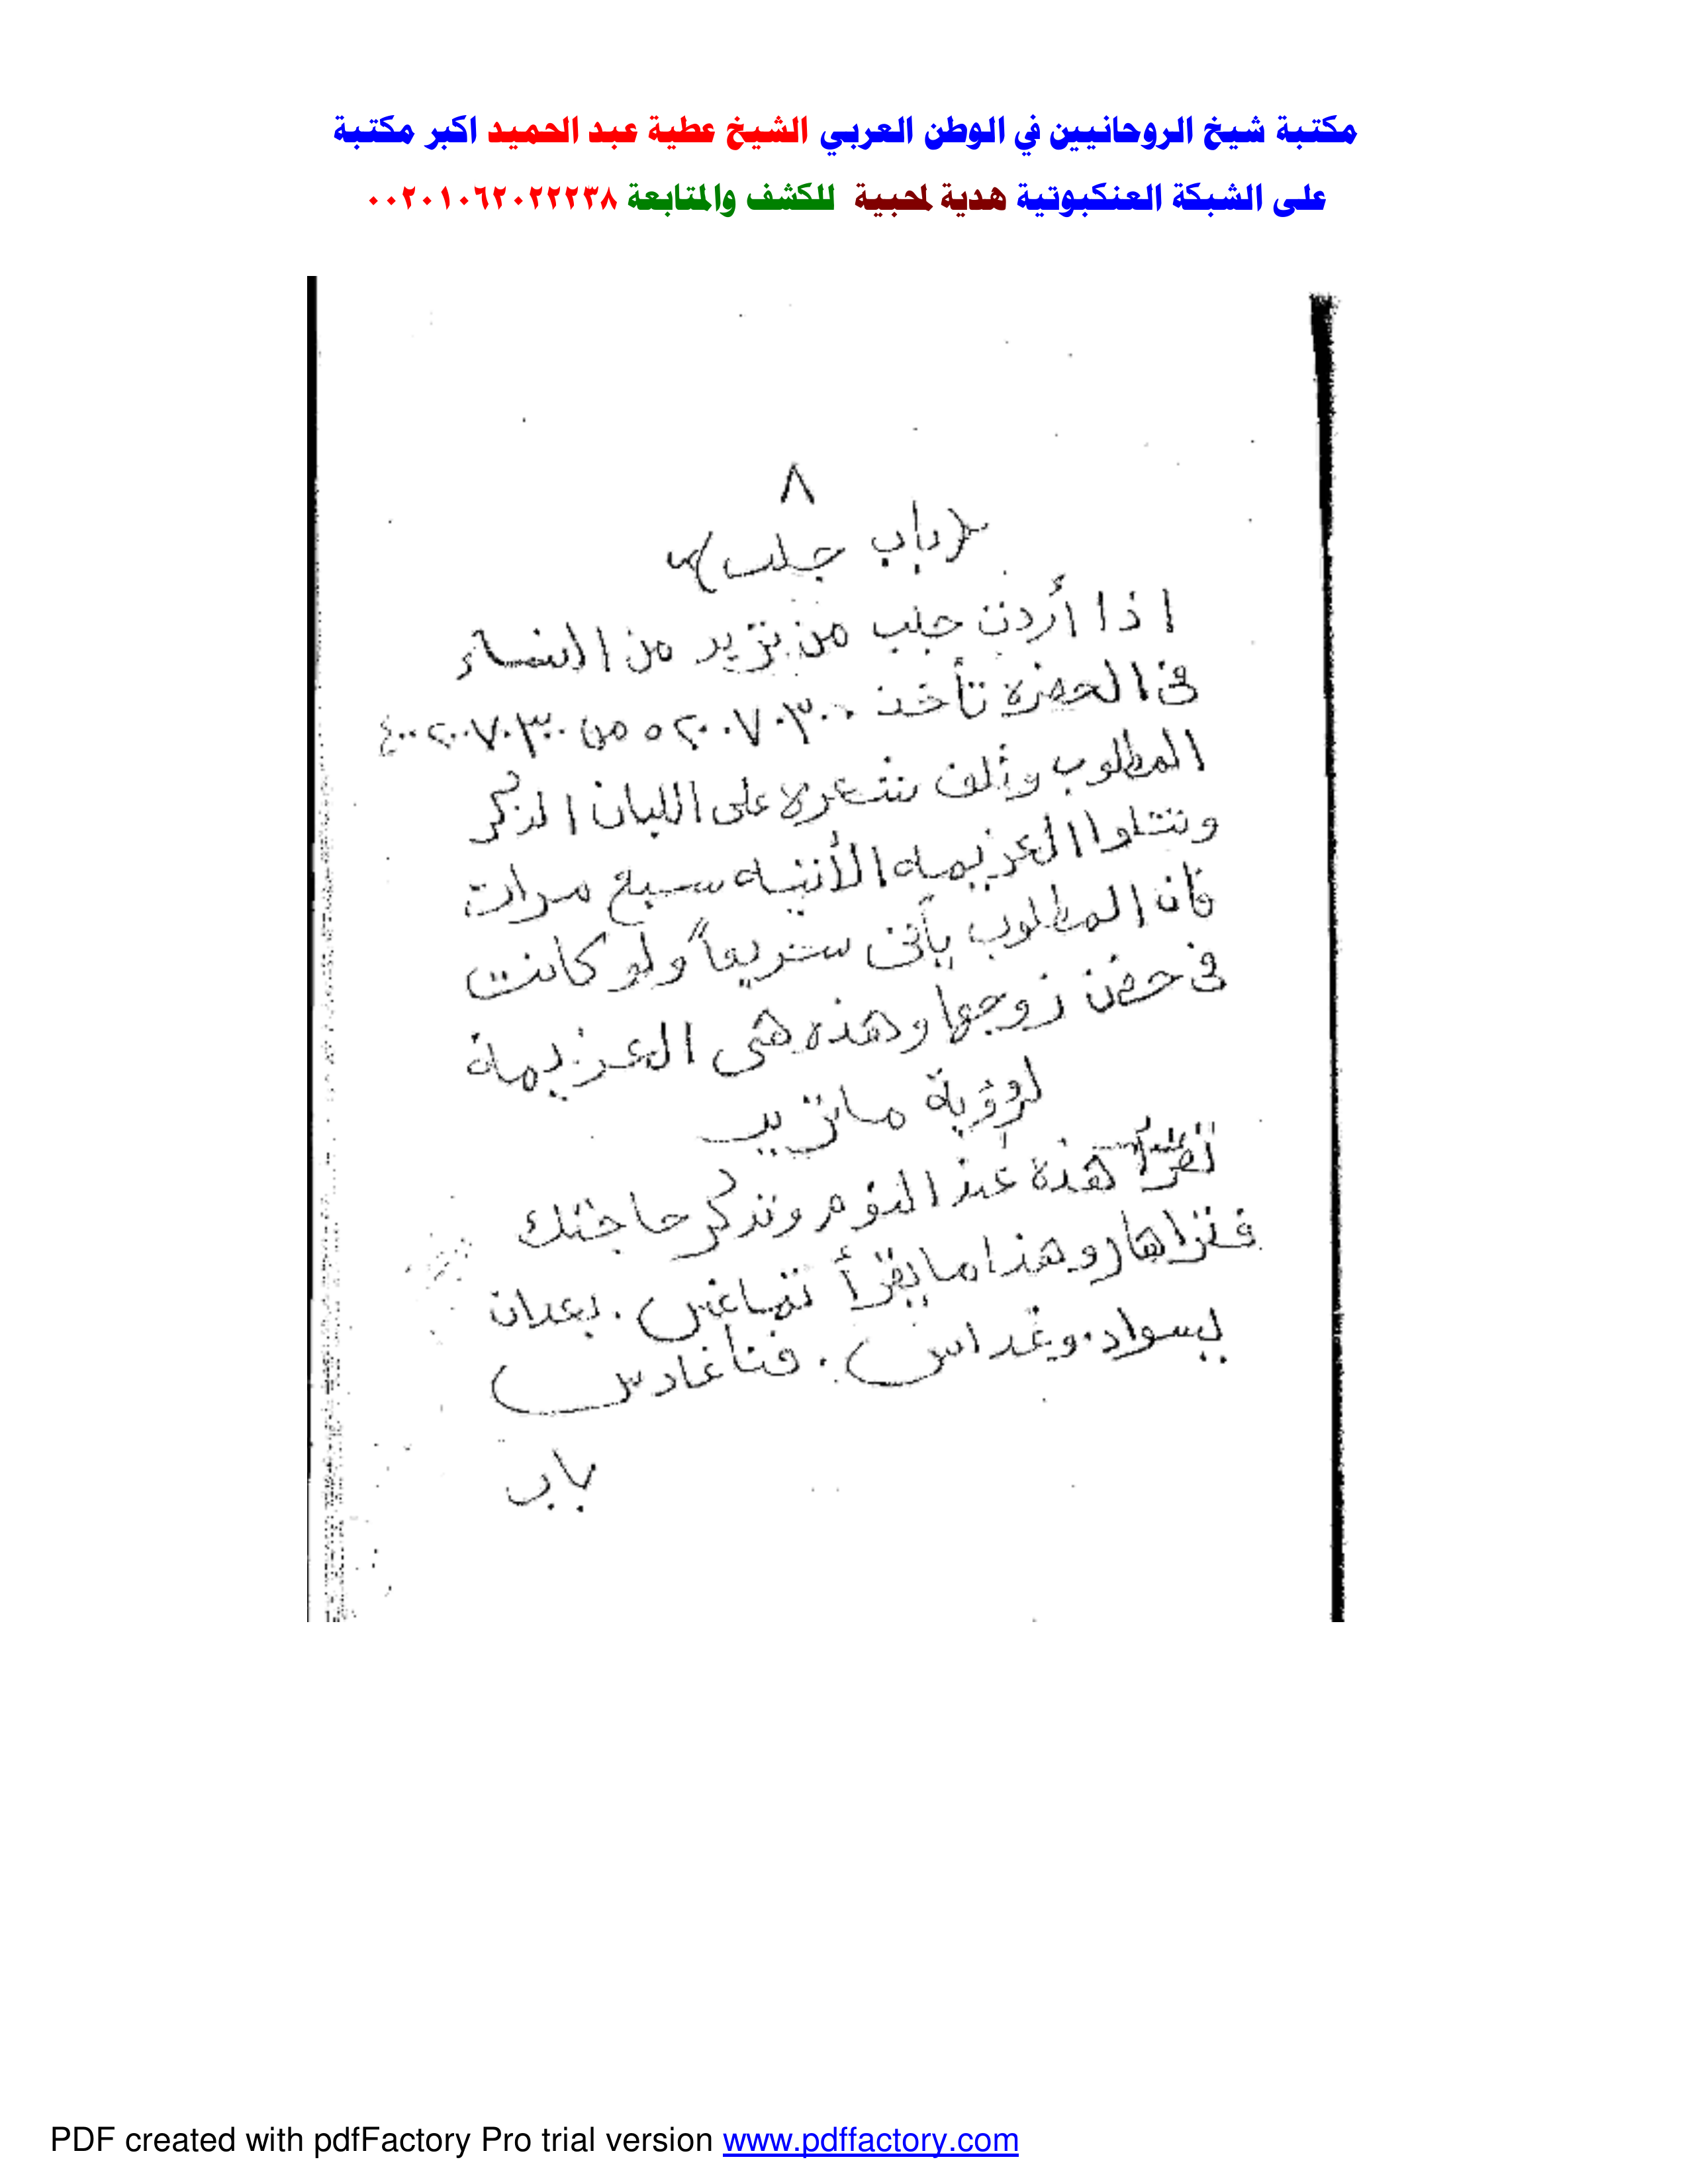 مكتبة شيخ الروحانيين في الوطن العربي الشيخ عطية عبد الحميد اكبر مكتبة
على الشبكة العنكبوتية هدية لمحبية للكشف والمتابعة ٠٠٢٠١٠٦٢٠٢٢٢٣٨
٨
﴿باب جلب﴾
اذا أردت جلب من تريد من النساء
فى الحضرة تأخذ ٣٠٠ ٧٠ ٢٠٠ ٥ من ٣٠٠ ٧٠ ٢٠٠ ٤٠٠
المطلوب وتلف شعره على اللبان الذكر
وتتلوا العزيمه الأتيه سبع مرات
فان المطلوب يأتى سريعاً ولو كانت
فى حضن زوجها وهذه هى العزيمة
لرؤية ما تريد
تقرأ هذة عند النوم وتذكر حاجتك
فتراها وهذا ما يقرأ . بعدان
بسواد . وغداس . فناغادس
باب
PDF created with pdfFactory Pro trial version www.pdffactory.com